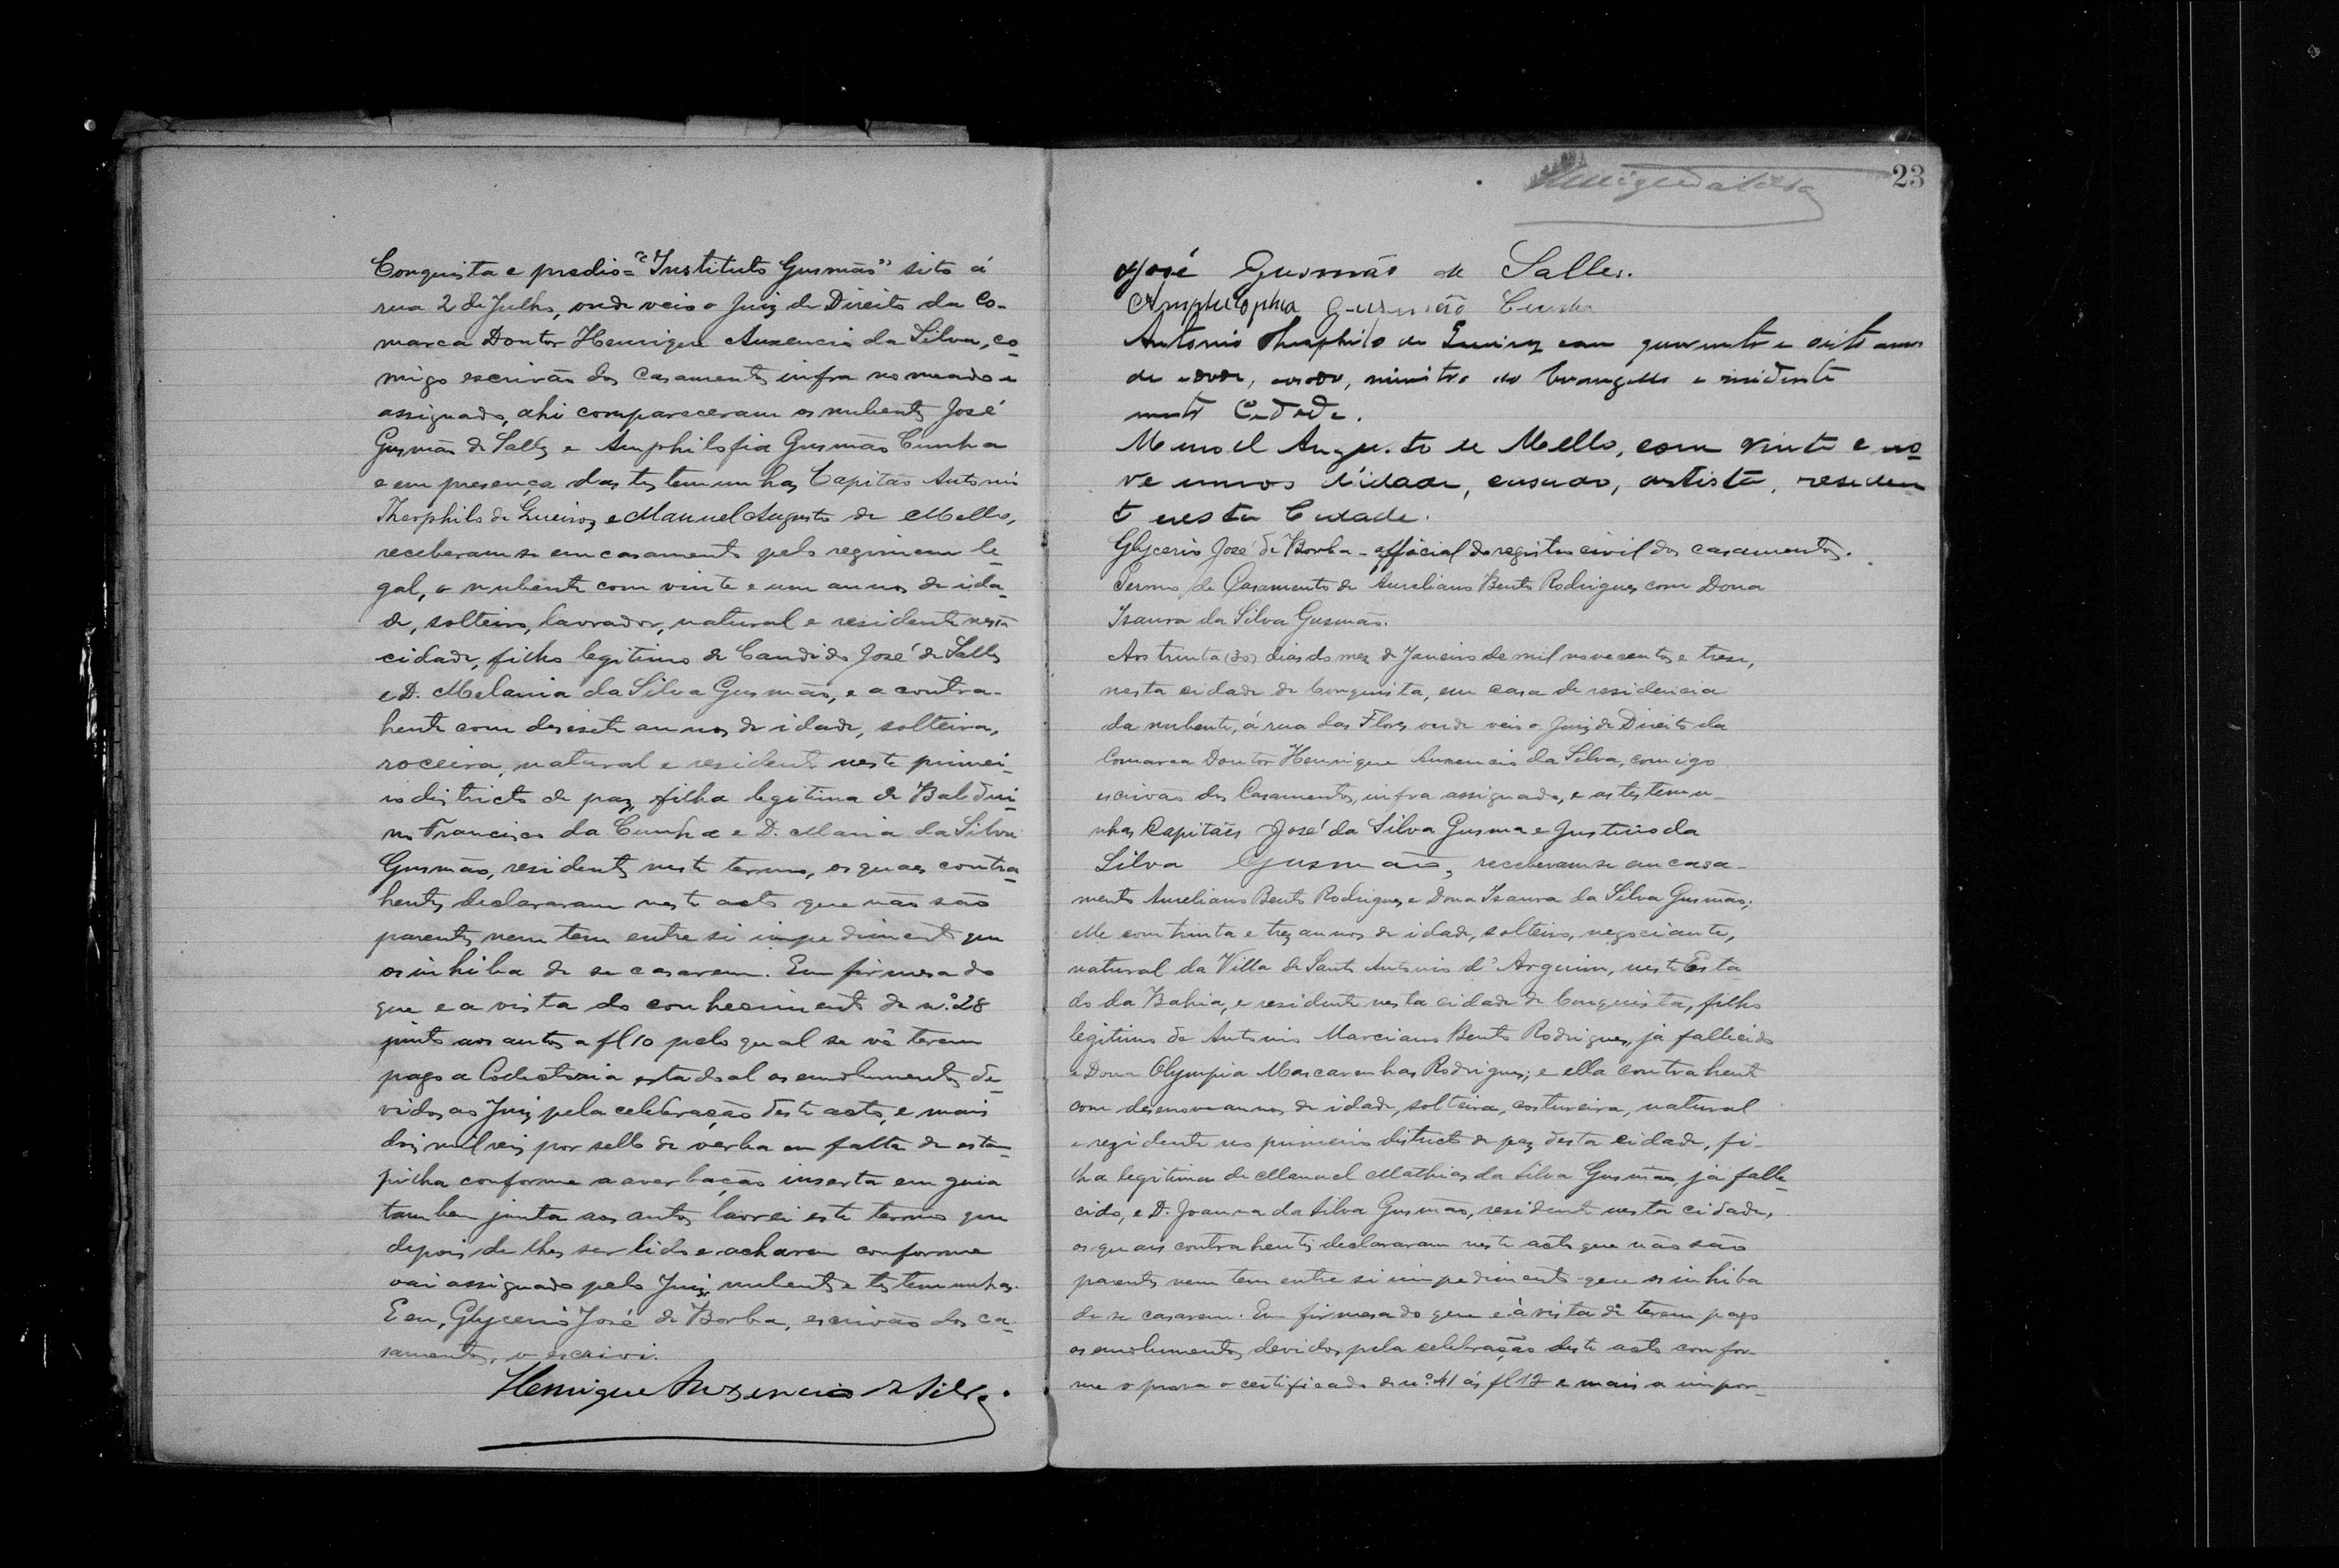 Conquista e predio = "Instituto Gusmão" sito á
rua 2 de Julho, onde veio o Juiz de Direito da Co-
marca Doutor Henrique Auxencio da Silva, co-
migo escrivão dos Casamentos infra nomeado e
assignado, ahi compareceram os nubentes José
Gusmão de Salles e Amphilofia Gusmão Cunha
e em presença das testemunhas Capitão Antonio
Theophilo de Queiroz e Manuel Augusto de Mello,
receberam-se em casamento pelo regimem le-
gal, o nubente com vinte e um annos de ida-
de, solteiro, lavrador, natural e residente nesta
cidade, filho legitimo de Candido José de Salles
e D. Melania da Silva Gusmão, e a contra-
hente com desesete annos de idade, solteira,
roceira, natural e residente neste primei-
ro districto de paz, filha legitima de Balduí-
no Francisco da Cunha e D. Maria da Silva
Gusmão, residentes neste termo, os quaes contra-
hentes declararam neste acto que não são
parentes nem tem entre si impedimento que
os inhiba de se casarem. Em firmesa do
que e a vista do conhecimento de nº 28
junto aos autos a fl 10 pelo qual se vê terem
pago a Collectoria estadoal os emolumentos de-
vidos ao Juiz pela celebração deste acto, e mais
dois mil reis por sello de verba em falta de estam-
pilha conforme a averbação inserta em guia
tambem junta aos autos, lavrei este termo que
depois de lhes ser lido e acharem conforme
vai assignado pelo Juiz, nubentes e testemunhas.
E eu, Glycerio José de Borba, escrivão dos ca-
samentos, o escrivi.
Henrique Auxencio da Silva.
23
José Gusmão de Salles.
Amphilophia Gusmão Cunha
Antonio Theophilo de Queiroz com quarenta e oito annos
de edade, casado, ministro do Evangelho e residente
nesta Cidade.
Manoel Augusto de Mello, com vinte e no-
ve annos d'idade, casado, artista, residen
te nesta Cidade.
Glycerio José de Borba - official do registro civil dos casamentos.
Termo de Casamento de Aureliano Bento Rodrigues com Dona
Isaura da Silva Gusmão.
Aos trinta (30) dias do mez de Janeiro de mil novecentos e trese,
nesta cidade de Conquista, em casa de residencia
da nubente, á rua das Flores onde veio o Juiz de Direito da
Comarca Doutor Henrique Auxencio da Silva, comigo
escrivão dos Casamentos, infra assignado, e as testemu-
nhas Capitães José da Silva Gusma e Justino da
Silva Gusmão, receberam-se em casa-
mento Aureliano Bento Rodrigues e Dona Isaura da Silva Gusmão;
elle com trinta e trez annos de idade, solteiro, negociante,
natural da Villa de Santo Antonio d'Arguim, neste Esta
do da Bahia, e residente nesta cidade de Conquista, filho
legitimo de Antonio Marciano Bento Rodrigues, já fallecido
e Dona Olympia Mascarenhas Rodrigues; e ella contrahente
com desenove annos de idade, solteira, costureira, natural
e rezidente no primeiro districto de paz desta cidade, fi-
lha legitima de Manuel Mathias da Silva Gusmão, já falle-
cido, e D. Joanna da Silva Gusmão, residente nesta cidade,
os quais contrahentes declararam neste acto que não são
parentes nem tem entre si impedimento que os inhiba
de se casarem. Em firmesa do que e á vista de terem pago
os emolumentos devidos pela celebração deste acto confor-
me o prova o certificado de nº 41 ás fl 12 e mais a impor-